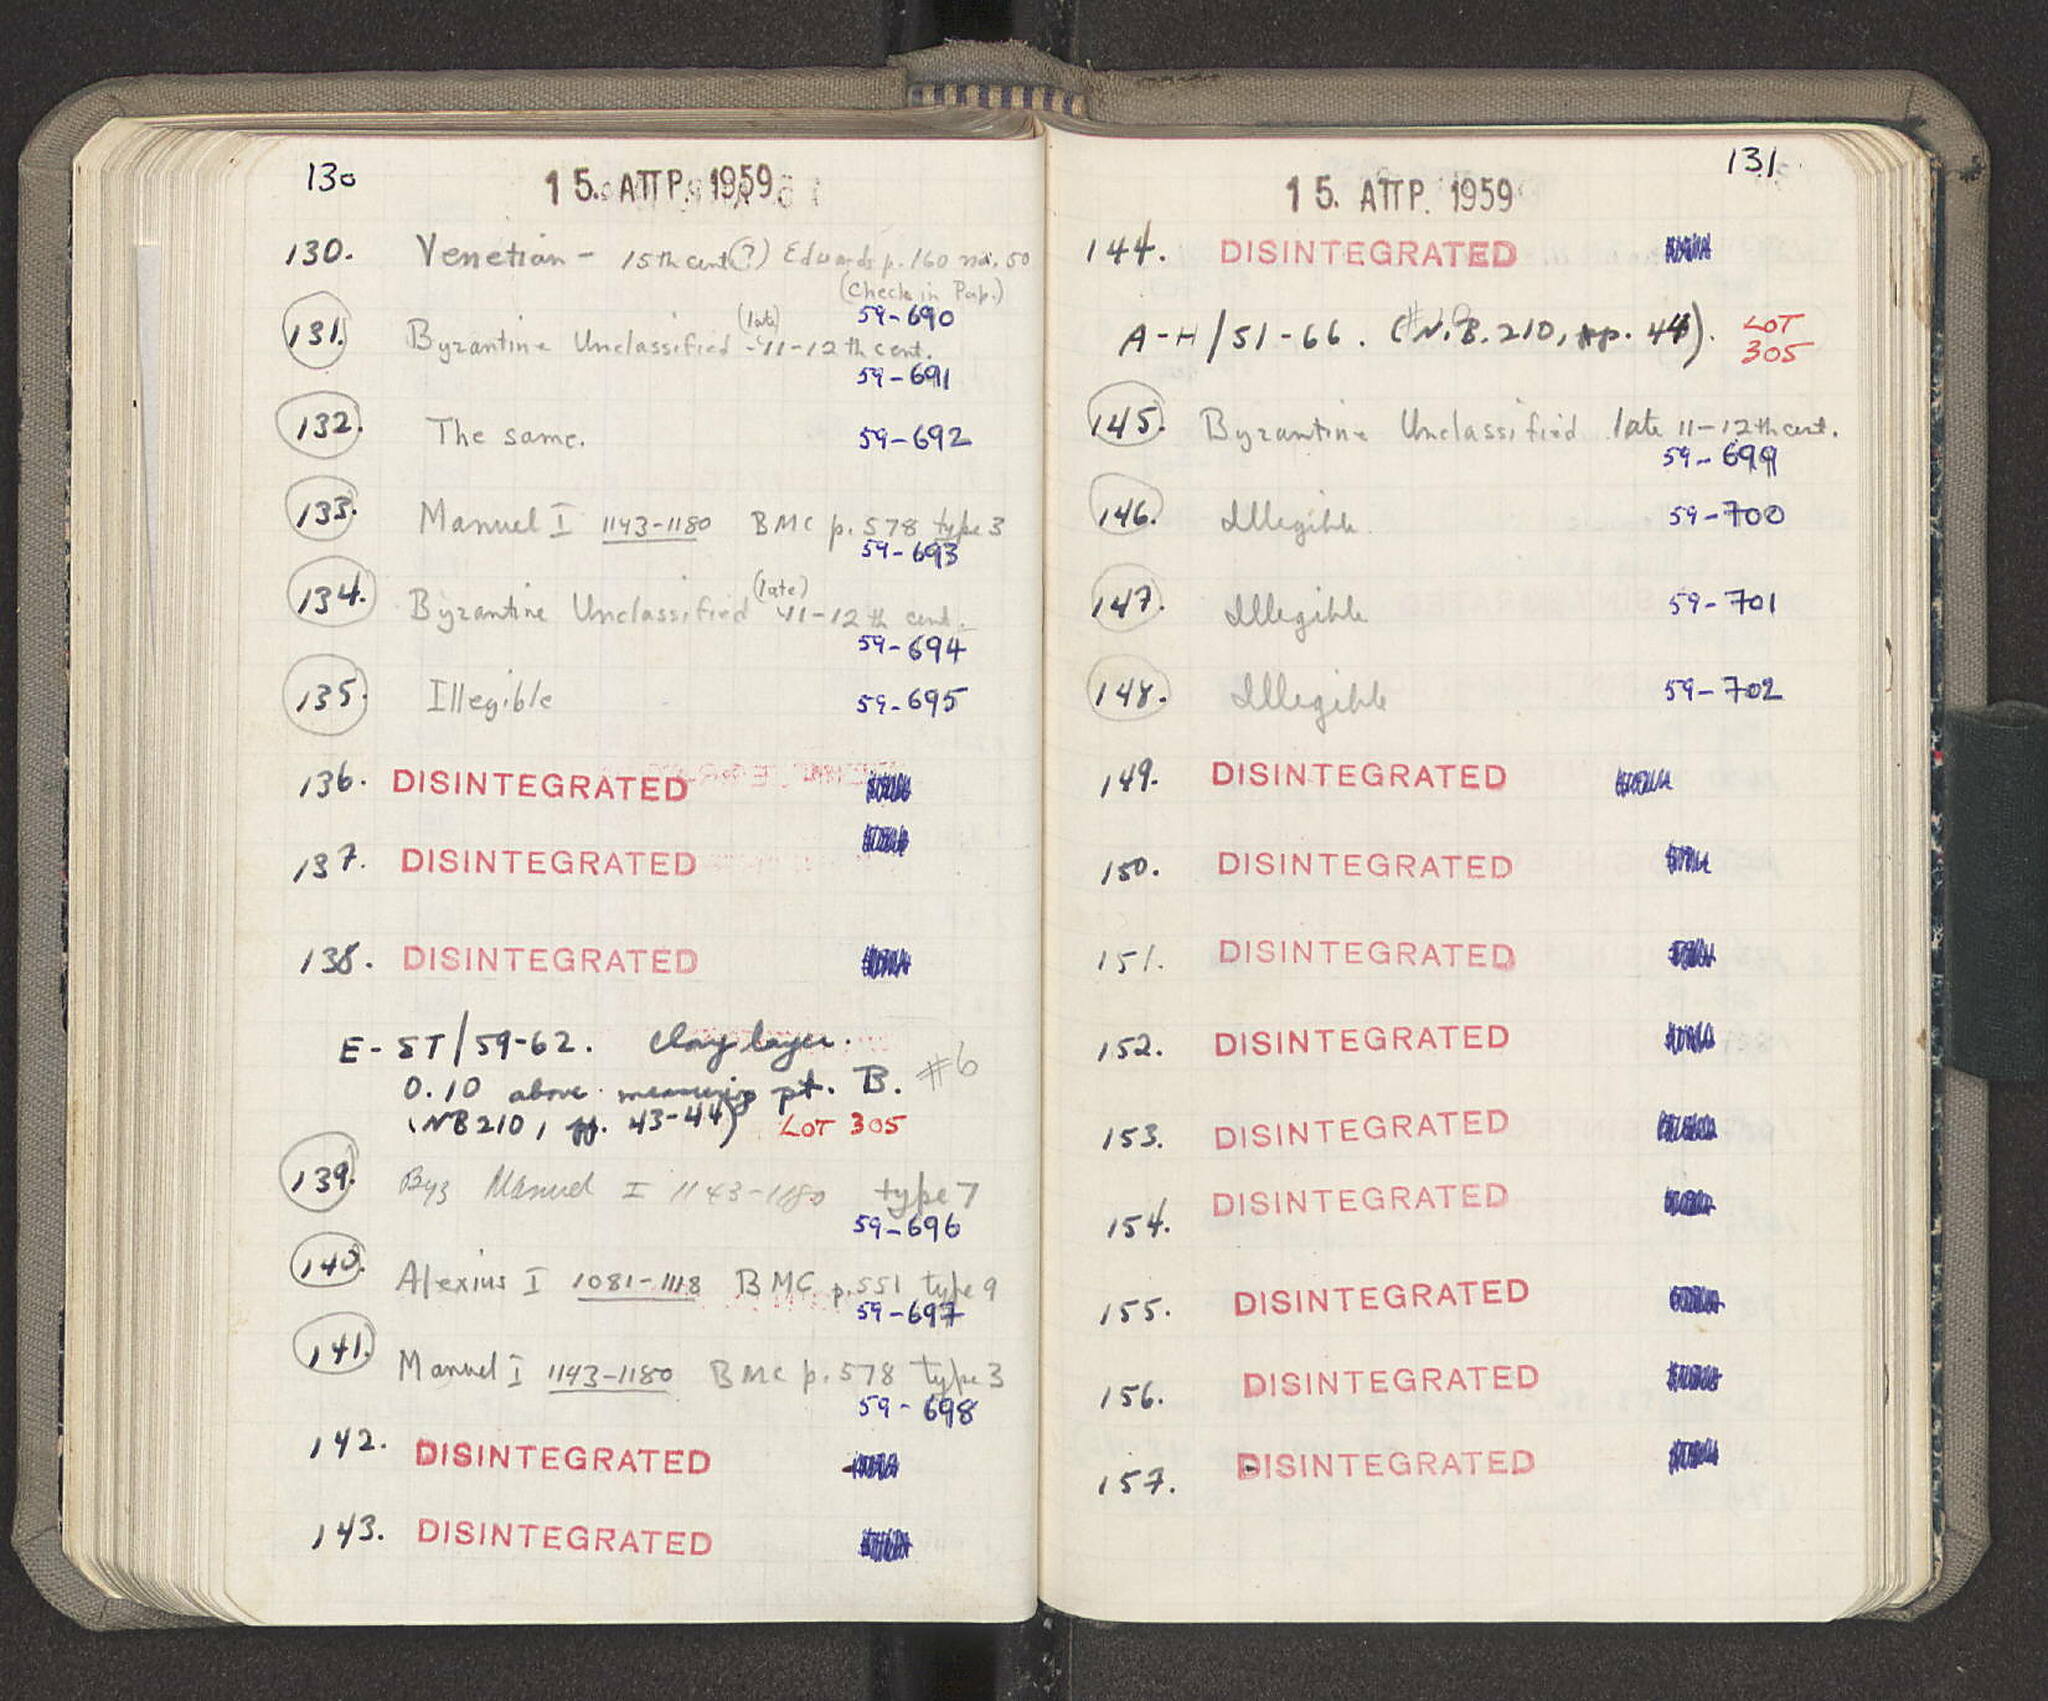 130
15. ΑΠΡ. 1959
130. Venetian - 15th cent(?) Edwards p. 160 no. 50
(Check in Pap.)
59-690
131. Byzantine Unclassified - (late) 11-12th cent.
59-691
132. The same. 59-692
133. Manuel I 1143-1180 BMC p. 578 type 3
59-693
134. Byzantine Unclassified (late) 11-12th cent.
59-694
135. Illegible 59-695
136. DISINTEGRATED
137. DISINTEGRATED
138. DISINTEGRATED
E-ΣΤ/59-62. Clay layer.
0.10 above measuring pt. B. #6
(NB210, pp. 43-44) LOT 305
139. Byz Manuel I 1143-1180 type 7
59-696
140. Alexius I 1081-1118 BMC p. 551 type 9
59-697
141. Manuel I 1143-1180 BMC p. 578 type 3
59-698
142. DISINTEGRATED
143. DISINTEGRATED
131
15. ΑΠΡ. 1959
144. DISINTEGRATED
A-H/51-66. (N.B. 210, p. 44). LOT
305
145. Byzantine Unclassified late 11-12th cent.
59-699
146. Illegible. 59-700
147. Illegible 59-701
148. Illegible 59-702
149. DISINTEGRATED
150. DISINTEGRATED
151. DISINTEGRATED
152. DISINTEGRATED
153. DISINTEGRATED
154. DISINTEGRATED
155. DISINTEGRATED
156. DISINTEGRATED
157. DISINTEGRATED